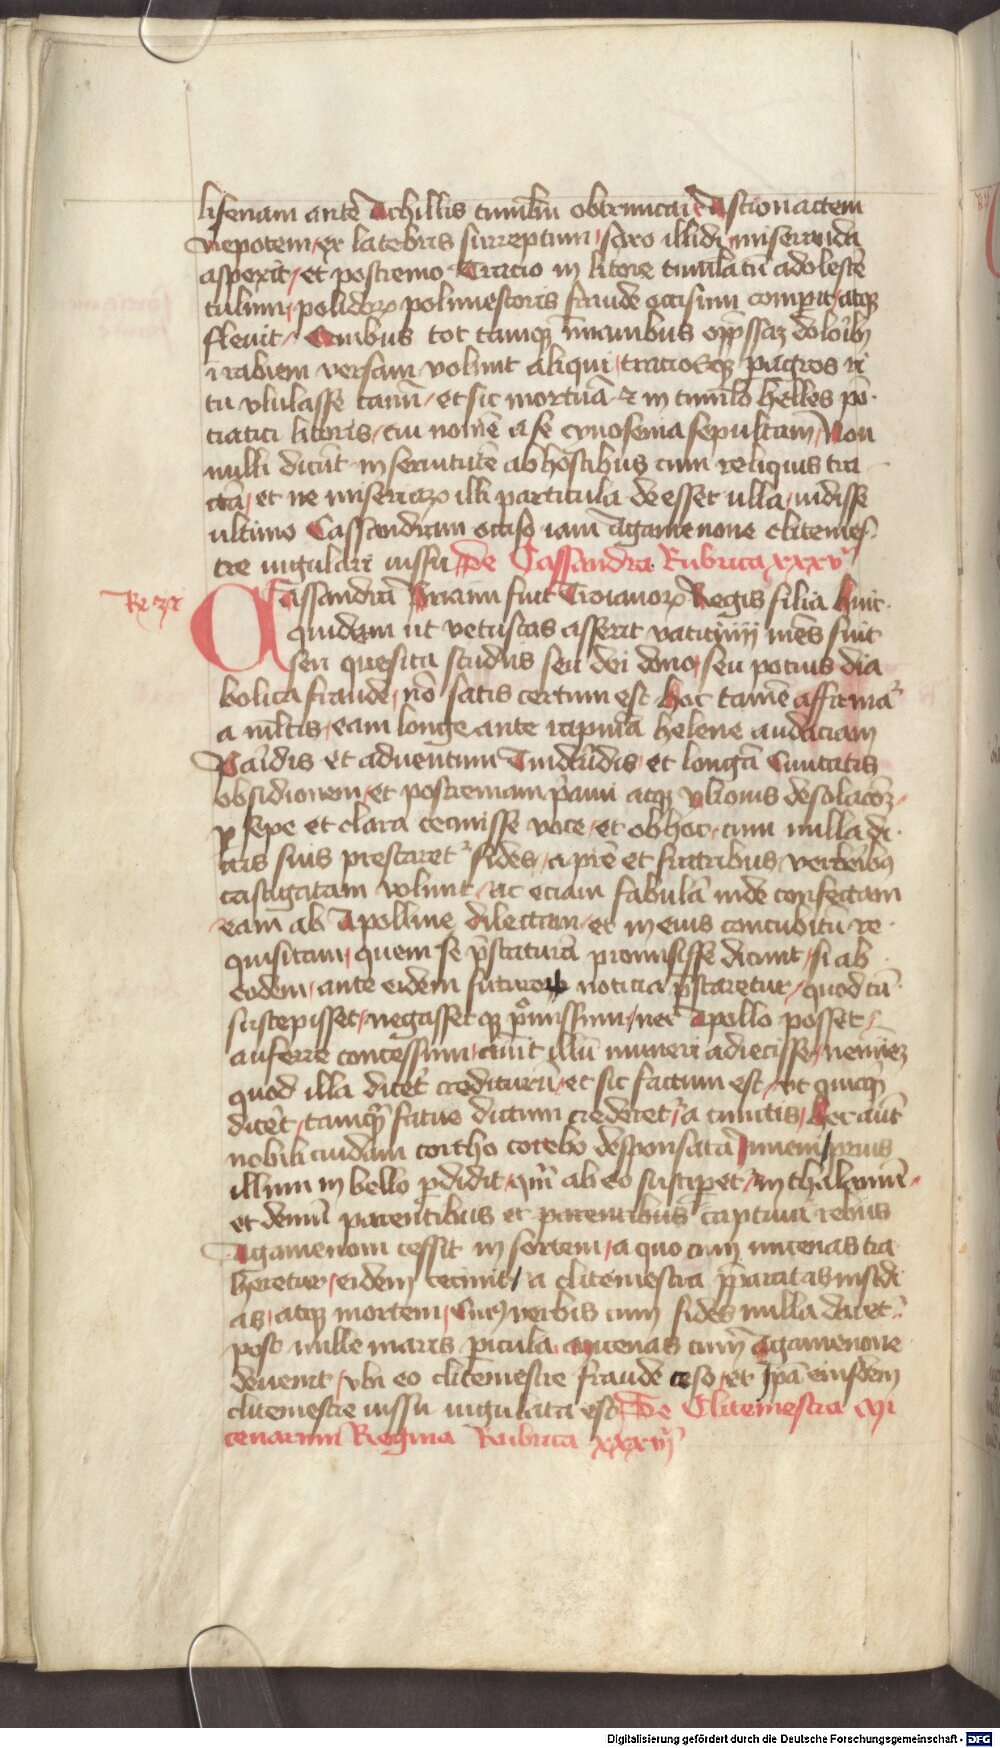 lisenam ante Achillis tumulū obtruncari Astionactem
nepotem ex latebris surreptum saxo illidi miseranda
aspexit et postremo Tracio in litore tumulatū adolescē
tulum polidoꝝ polimestoris fraude occisum compit atqꝫ
flevit Quibus tot tamqꝫ īmanibus opp̄ssaꝫ dolorib9
ī rabiem versam volunt aliqui tracioſqꝫ p agros ri
tu ululasse canū et sic mortuā ⁊ in tumulo helles po
tiatici litoris cui nomē a se cynosema sepultam Non
nulli dicūt in servitutē ab hostibus cum reliquis tra
ctā et ne miseriaꝝ illi particula deesset ulla vidisse
ultimo Cassandram occiso iam Agamenone clitemes
tre iugulari iussu De Cassandra Rubrica xxxv
Cassandra Priami fuit Troianoꝝ Regis filia huic
quidem ut vetustas asserit vaticinij mēs fuit
seu quesita studiis seu dei dono seu potius dia
bolica fraude nō satis certum est hoc tamē affirmat̄
a mltis eam longe ante rapinā helene audaciam
Paridis et adventum Tindaridis et longā Civitatis
obsidionem et postremam priami atqꝫ ylionis desolacōeꝫ
p sepe et clara cecinisse voce et ob hoc cum nulla di
ctis suis prestaret̄ fides a pr̄e et fratribus verberib9
castigatam volunt ac eciam fabulā inde confectam
eam ab Apolline dilectam et in eius concubitū re
quisitam quem se p̄staturā promisisse dicunt si ab
eodem ante eidem futuroꝝ noticia p̄staretur quod cū
suscepisset negassetqꝫ p̄missum nec Apollo posset
auferre concessum aiūt illū muneri adiecisse neminē
quod illa dicēt crediturū et sic factum est ut quicq̄
dicēt tamq̄ fatue dictum crederet̄ a cunctis Hec aūt
nobili cuidam cortho corebo desponsata iuveni prius
illum in bello p̄didit q̄m ab eo suscipet̄ in thalamū
et demū parentibus et parentibus captiva rebus
Agamenoni cessit in sortem a quo cum micenas tra
heretur eidem cecinit a clitemestra p̄paratas insidi
as atqꝫ mortem Cui9 verbis cum fides nulla daret̄
post mille maris picula micenas cum Agamenone
devenit ubi eo clitemestre fraude ceso et ip̄a eiusdem
clitemestre iussu iugulata est De Clitemestra Mi
cenarum Regina Rubrica xxxvj